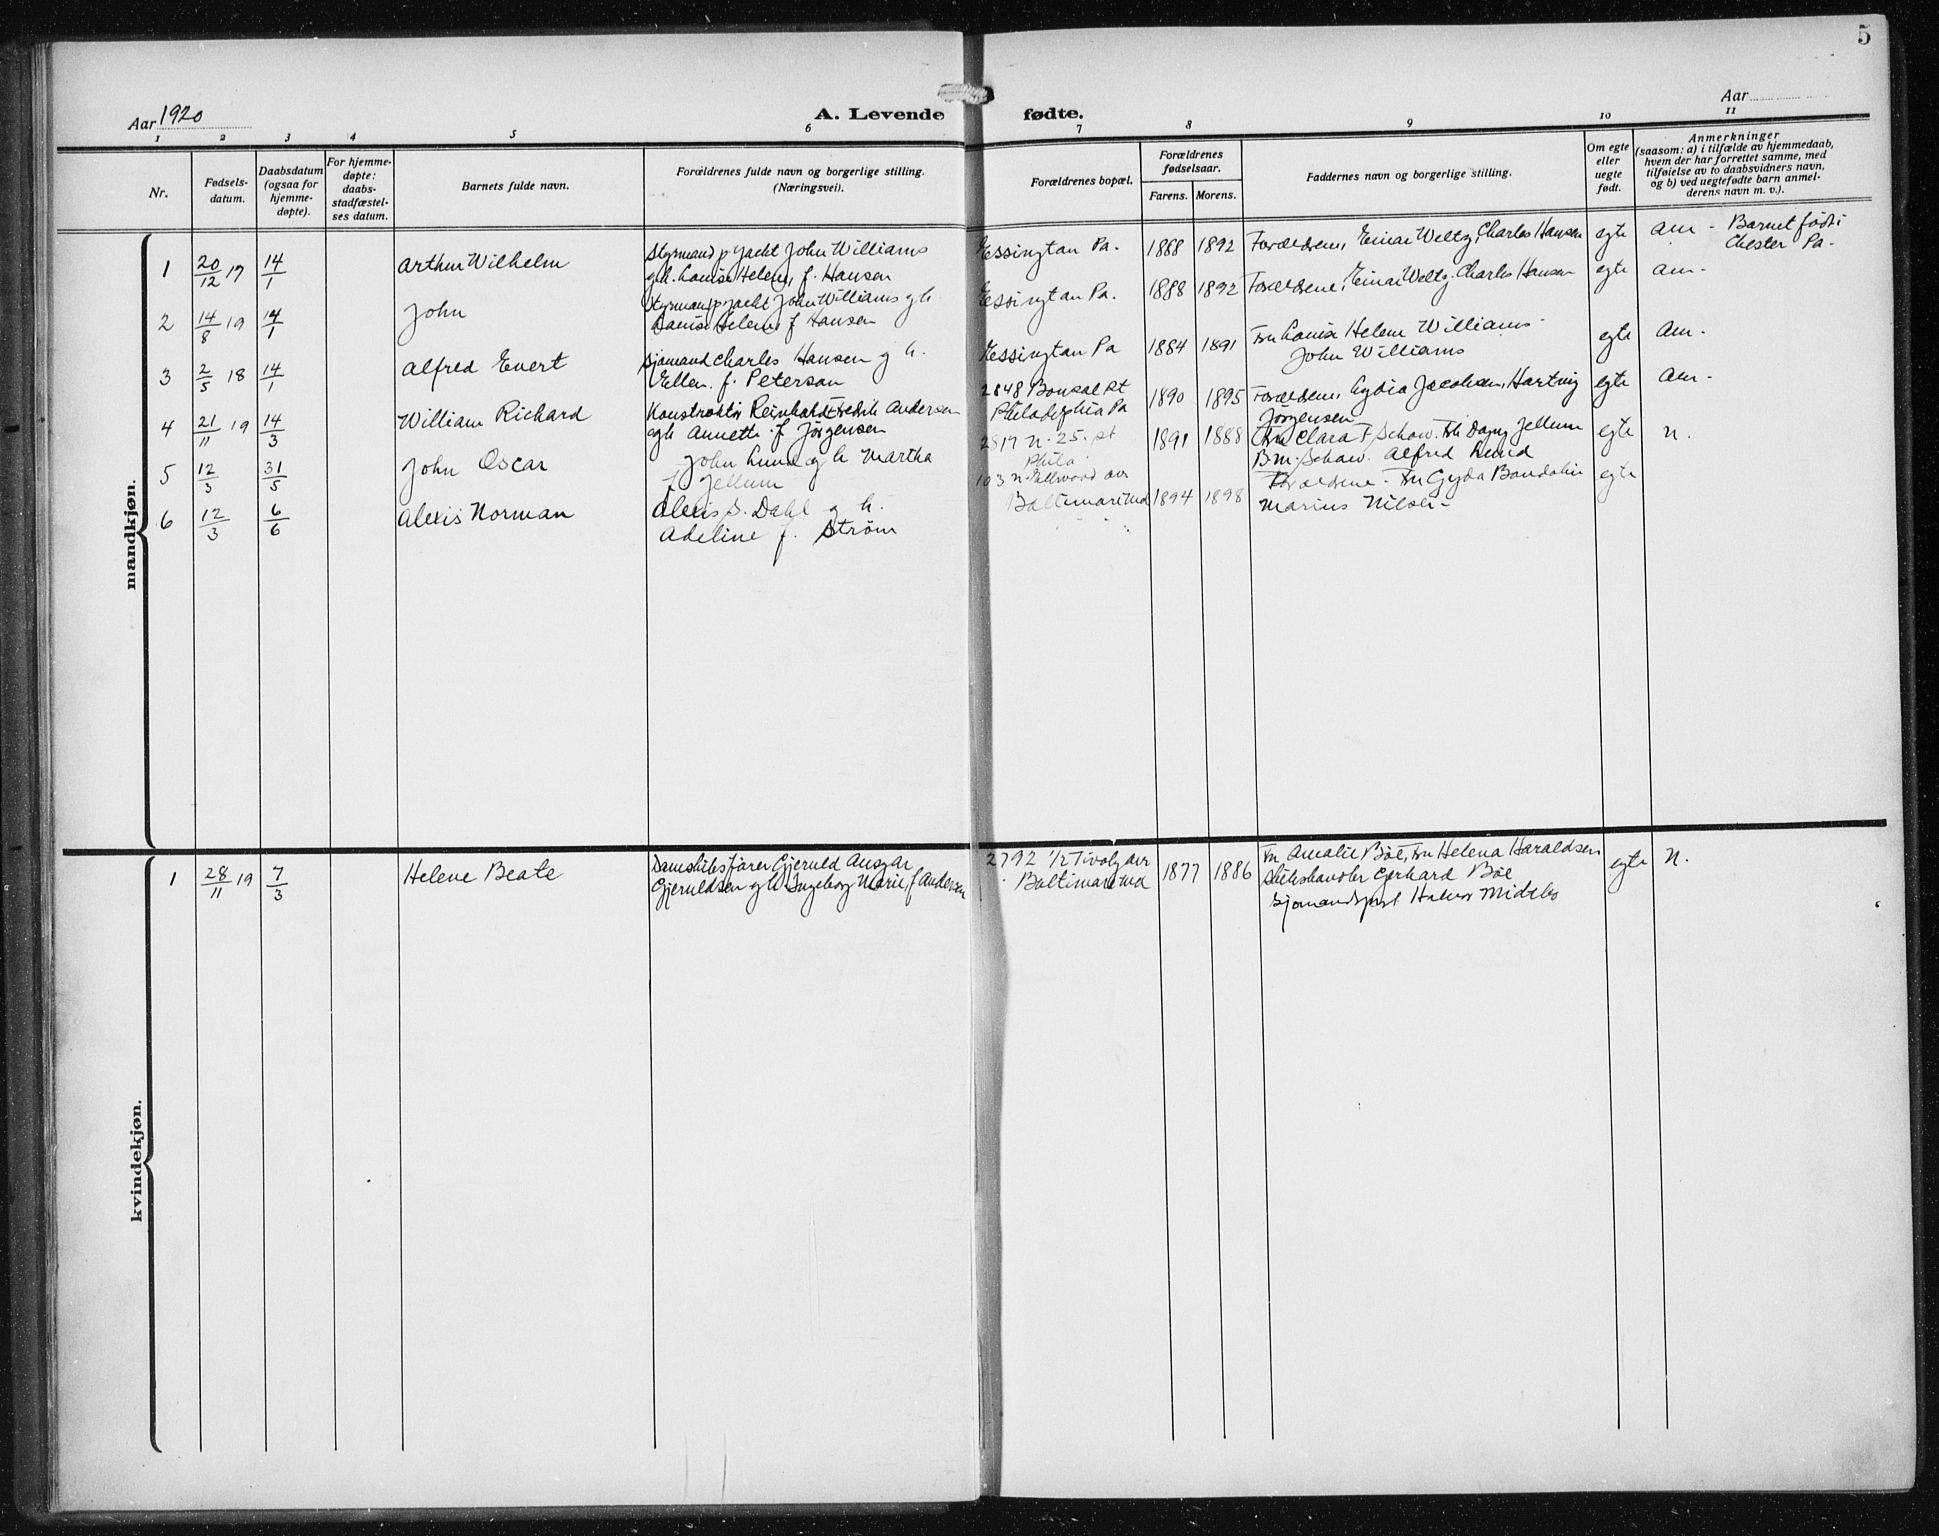 5
Aar 1920
A. Levende fødte.
Aar
1 2 3 4 5 6 7 8 9 10 11
Nr.
Fødsels-
datum.
Daabsdatum
(ogsaa for
hjemme-
døpte).
For hjemme-
døpte:
daabs-
stadfæstel-
ses datum.
Barnets fulde navn.
Forældrenes fulde navn og borgerlige stilling.
(Næringsvei).
Forældrenes bopæl.
Forældrenes
fødselsaar.
Farens. Morens.
Faddernes navn og borgerlige stilling.
Om egte
eller
uegte
født.
Anmerkninger
(saasom: a) i tilfælde av hjemmedaab,
hvem der har forrettet samme, med
tilføielse av to daabsvidners navn,
og b) ved uegtefødte barn anmel-
derens navn m. v.).
mandkjøn.
1 20/12 17 14/1 Arthur Wilhelm Styrmand p. Jacht John Williams Essington Pa. 1888 1892 Forældrene, Einar Weltz, Charles Hansen egte am - Barnet født i
gh. Louise Helene f. Hansen Chester Pa-
2 14/8 19 14/1 John Styrmand p Jacht John Williams g h. Essington Pa. 1888 1892 Forældrene, Einar Weltz, Charles Hansen egte am-
Louise Helene f Hansen
3 2/5 18 14/1 Alfred Evert Sjømand Charles Hansen g h. Essington Pa 1884 1891 Fru Louise Helene Williams- egte am-
Ellen. f. Peterson John Williams
4 21/11 19 14/3 William Richard Konstruktør Reinhardt Fredrik Andersen 2848 Bonsal st 1890 1895 Forældrene, Lydia Jacobsen, Hartvig egte am-
gh Annette f Jörgensen Philadelphia Pa Jörgensen
5 12/3 31/5 John Oscar John Lund g h Martha 2517 n. 25. st 1891 1888 Fru Clara F. Schow. Frk Dagny Jellum egte n.
f Jellum Phila B.M. Schow. Alfred Lund
6 12/3 6/6 Alexis Norman Alexis S. Dahl g h. 103 n. Ellwood av 1894 1898 Forældrene - Fru Gyda egte
Adeline f. Strøm Baltimore Md Marius Nilsen-
kvindekjøn.
1 28/11 19 7/3 Helene Beate Dampskibsfører Gjeruld Ansgar 2792 1/2 Tivoly ave 1877 1886 Fru Amalie Böe, Fru Helena Haraldsen egte n.
Gjeruldsen g h Ingeborg Marie f Andersen Baltimore Md Skibshandler Gerhard Böe
Sjømandsprest Halvor Midtbö